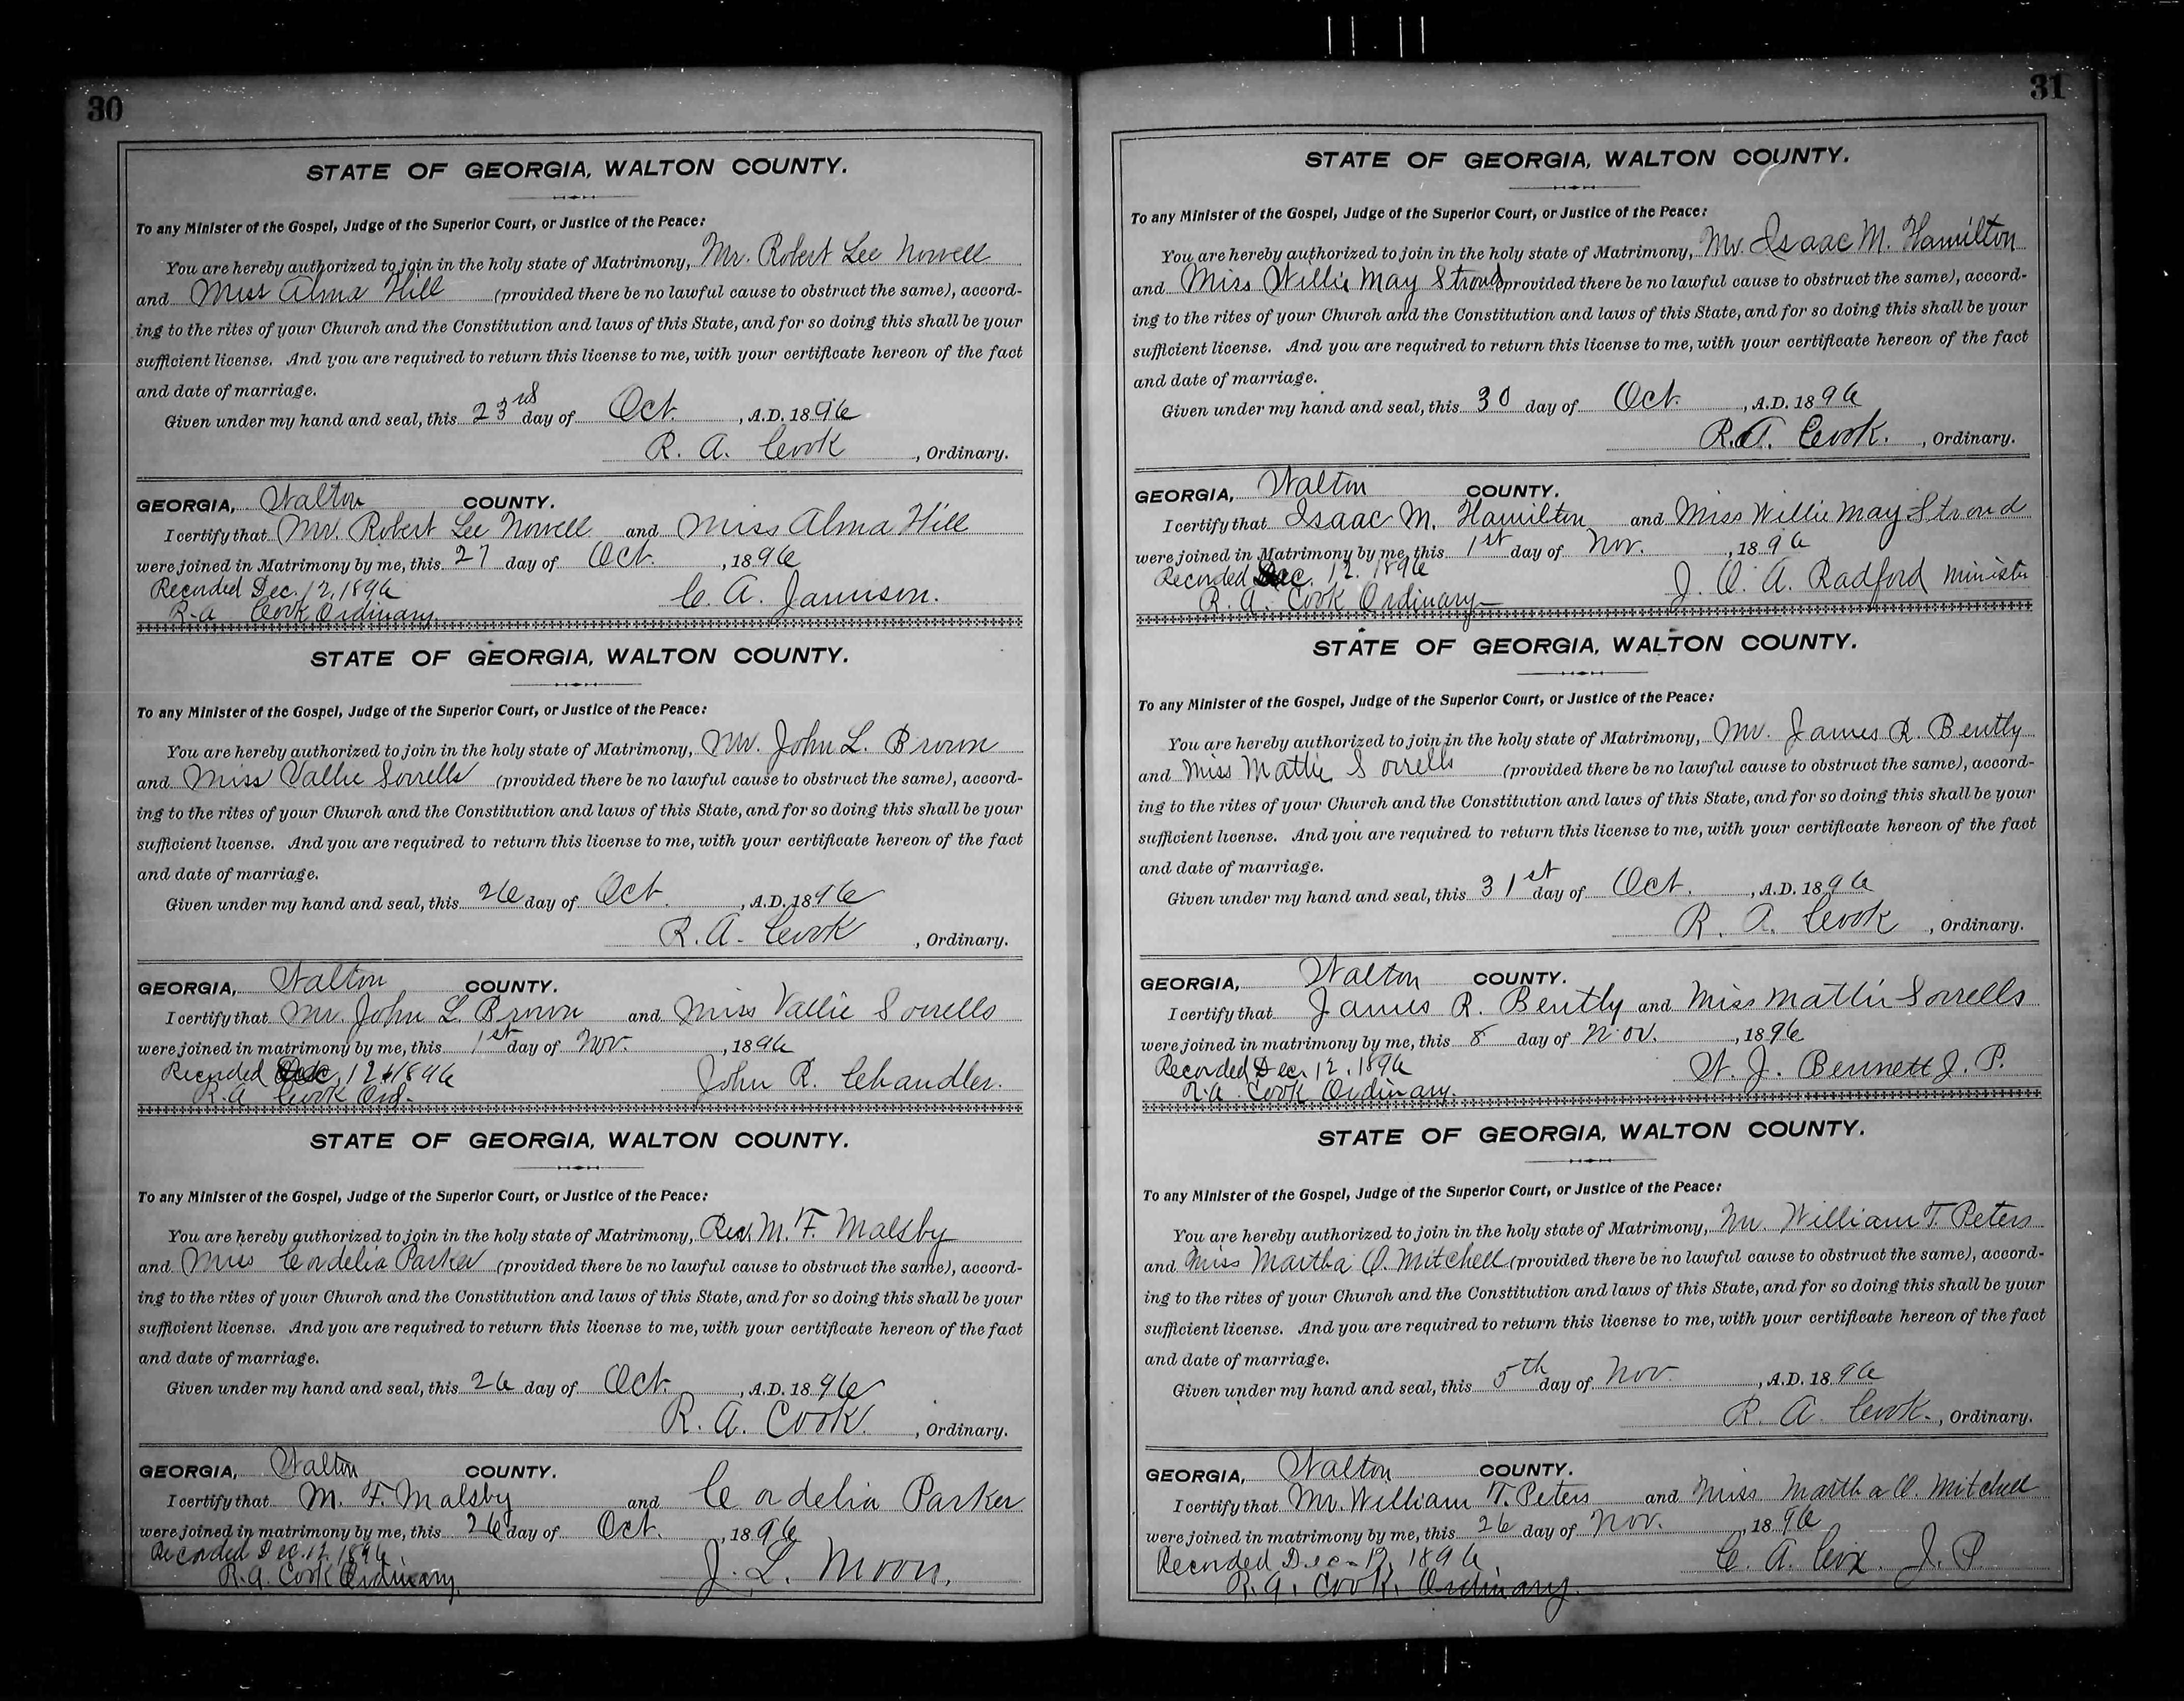 30
STATE OF GEORGIA, WALTON COUNTY.
To any Minister of the Gospel, Judge of the Superior Court, or Justice of the Peace:
You are hereby authorized to join in the holy state of Matrimony, Mr. Robert Lee Nowell
and Miss Alma Hill (provided there be no lawful cause to obstruct the same), accord-
ing to the rites of your Church and the Constitution and laws of this State, and for so doing this shall be your
sufficient license. And you are required to return this license to me, with your certificate hereon of the fact
and date of marriage.
Given under my hand and seal, this 23rd day of Oct. , A.D. 1896
R. A. Cook , Ordinary.
GEORGIA, Walton COUNTY.
I certify that Mr. Robert Lee Nowell and Miss Alma Hill
were joined in Matrimony by me, this 27 day of Oct. , 1896
Recorded Dec. 12, 1896
C. A. Jamison.
R. A Cook Ordinary.
STATE OF GEORGIA, WALTON COUNTY.
To any Minister of the Gospel, Judge of the Superior Court, or Justice of the Peace:
You are hereby authorized to join in the holy state of Matrimony, Mr. John L. Brown
and Miss Vallie Sorrells (provided there be no lawful cause to obstruct the same), accord-
ing to the rites of your Church and the Constitution and laws of this State, and for so doing this shall be your
sufficient license. And you are required to return this license to me, with your certificate hereon of the fact
and date of marriage.
Given under my hand and seal, this 26 day of Oct. , A.D. 1896
R. A. Cook , Ordinary.
GEORGIA, Walton COUNTY.
I certify that Mr. John L. Brown and Miss Vallie Sorrells
were joined in matrimony by me, this 1st day of Nov. , 1896
Recorded Dec. 12, 1896
John R. Chandler.
R. A Cook Ord.
STATE OF GEORGIA, WALTON COUNTY.
To any Minister of the Gospel, Judge of the Superior Court, or Justice of the Peace:
You are hereby authorized to join in the holy state of Matrimony, Rev. M. F. Malsby
and Miss Cordelia Parker (provided there be no lawful cause to obstruct the same), accord-
ing to the rites of your Church and the Constitution and laws of this State, and for so doing this shall be your
sufficient license. And you are required to return this license to me, with your certificate hereon of the fact
and date of marriage.
Given under my hand and seal, this 26 day of Oct. , A.D. 1896
R. A. Cook. , Ordinary.
GEORGIA, Walton COUNTY.
I certify that M. F. Malsby and Cordelia Parker
were joined in matrimony by me, this 26 day of Oct. , 1896
Recorded Dec. 12, 1896
J. L. Moon.
R. A. Cook Ordinary.
31
STATE OF GEORGIA, WALTON COUNTY.
To any Minister of the Gospel, Judge of the Superior Court, or Justice of the Peace:
You are hereby authorized to join in the holy state of Matrimony, Mr. Isaac M. Hamilton
and Miss Willie May Stroud (provided there be no lawful cause to obstruct the same), accord-
ing to the rites of your Church and the Constitution and laws of this State, and for so doing this shall be your
sufficient license. And you are required to return this license to me, with your certificate hereon of the fact
and date of marriage.
Given under my hand and seal, this 30 day of Oct. , A.D. 1896
R. A. Cook. , Ordinary.
GEORGIA, Walton COUNTY.
I certify that Isaac M. Hamilton and Miss Willie May Stroud
were joined in Matrimony by me, this 1st day of Nov. , 1896
Recorded Dec. 12. 1896
J. O. A. Radford Minister
R. A. Cook Ordinary
STATE OF GEORGIA, WALTON COUNTY.
To any Minister of the Gospel, Judge of the Superior Court, or Justice of the Peace:
You are hereby authorized to join in the holy state of Matrimony, Mr. James R. Bently
and Miss Mattie Sorrells (provided there be no lawful cause to obstruct the same), accord-
ing to the rites of your Church and the Constitution and laws of this State, and for so doing this shall be your
sufficient license. And you are required to return this license to me, with your certificate hereon of the fact
and date of marriage.
Given under my hand and seal, this 31st day of Oct. , A.D. 1896
R. A. Cook , Ordinary.
GEORGIA, Walton COUNTY.
I certify that James R. Bently and Miss Mattie Sorrells
were joined in matrimony by me, this 8 day of Nov. , 1896
Recorded Dec. 12, 1896
W. J. Bennett J. P.
R. A. Cook Ordinary.
STATE OF GEORGIA, WALTON COUNTY.
To any Minister of the Gospel, Judge of the Superior Court, or Justice of the Peace:
You are hereby authorized to join in the holy state of Matrimony, Mr. William T. Peters
and Miss Martha O. Mitchell (provided there be no lawful cause to obstruct the same), accord-
ing to the rites of your Church and the Constitution and laws of this State, and for so doing this shall be your
sufficient license. And you are required to return this license to me, with your certificate hereon of the fact
and date of marriage.
Given under my hand and seal, this 5th day of Nov. , A.D. 1896
R. A. Cook. , Ordinary.
GEORGIA, Walton COUNTY.
I certify that Mr. William T. Peters and Miss Martha O. Mitchell
were joined in matrimony by me, this 26 day of Nov. , 1896
Recorded Dec. 12, 1896
C. A. Cox. J. P.
R. A. Cook. Ordinary.